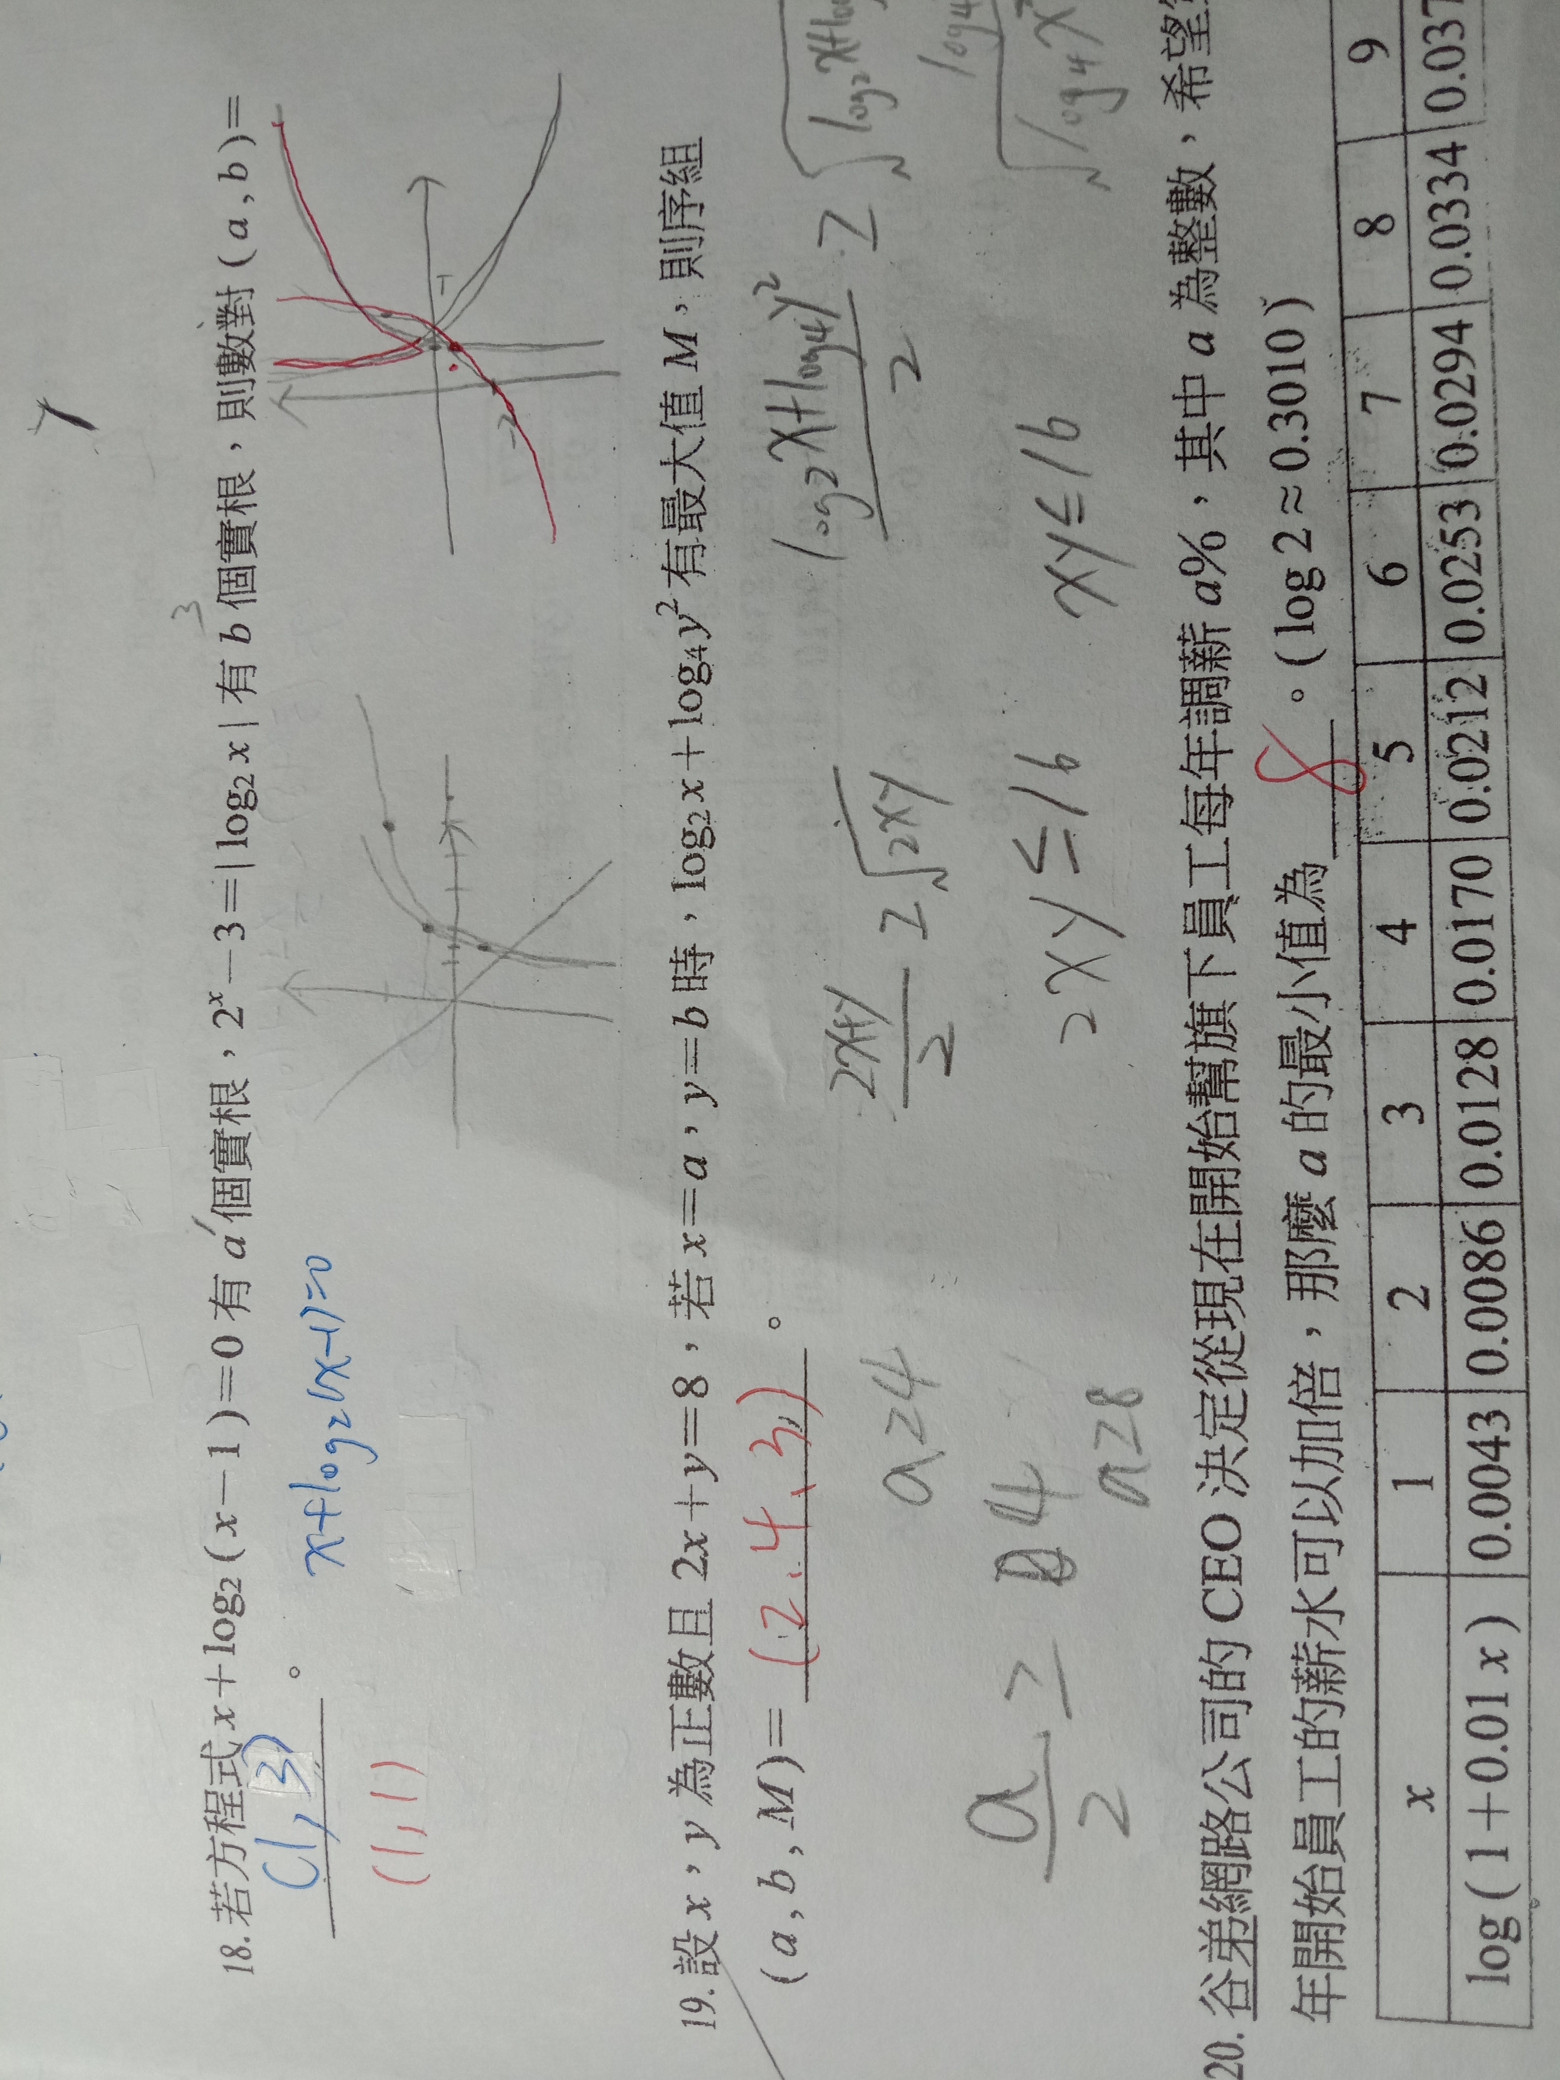 18. 若方程式 x+log₂(x−1)=0 有 a 個實根，2ˣ−3=|log₂x| 有 b 個實根，則數對 (a,b)=
3
(1,3) 。
x+log₂(x-1)=0
(1,1)
1
-2
19. 設 x，y 為正數且 2x+y=8，若 x=a，y=b 時，log₂x+log₄y² 有最大值 M，則序組
(a,b,M)= (2.4.3) 。
a≥4
2x+y/2 ≥ √2xy
log₂x+log₄y²/2 ≥ √log₂x+
a/2 ≥ 4
a≥8
2xy≤16
xy≤16
20. 谷弟網路公司的 CEO 決定從現在開始幫旗下員工每年調薪 a%，其中 a 為整數，希望
年開始員工的薪水可以加倍，那麼 a 的最小值為 8 。(log 2≈0.3010)
x 1 2 3 4 5 6 7 8 9
log(1+0.01x) 0.0043 0.0086 0.0128 0.0170 0.0212 0.0253 0.0294 0.0334 0.037